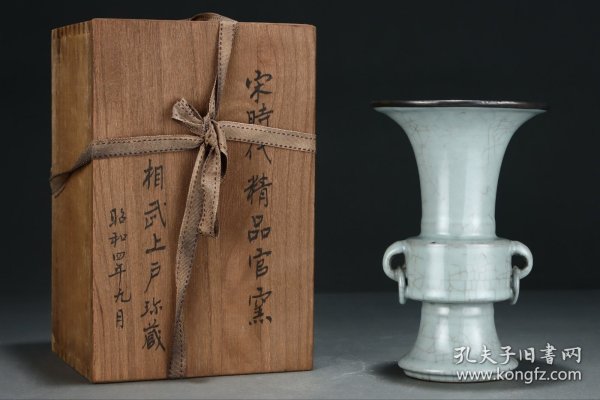 宋時代精品官窯
相武上戸珎藏
昭和四年九月
孔夫子旧書网
www.kongfz.com